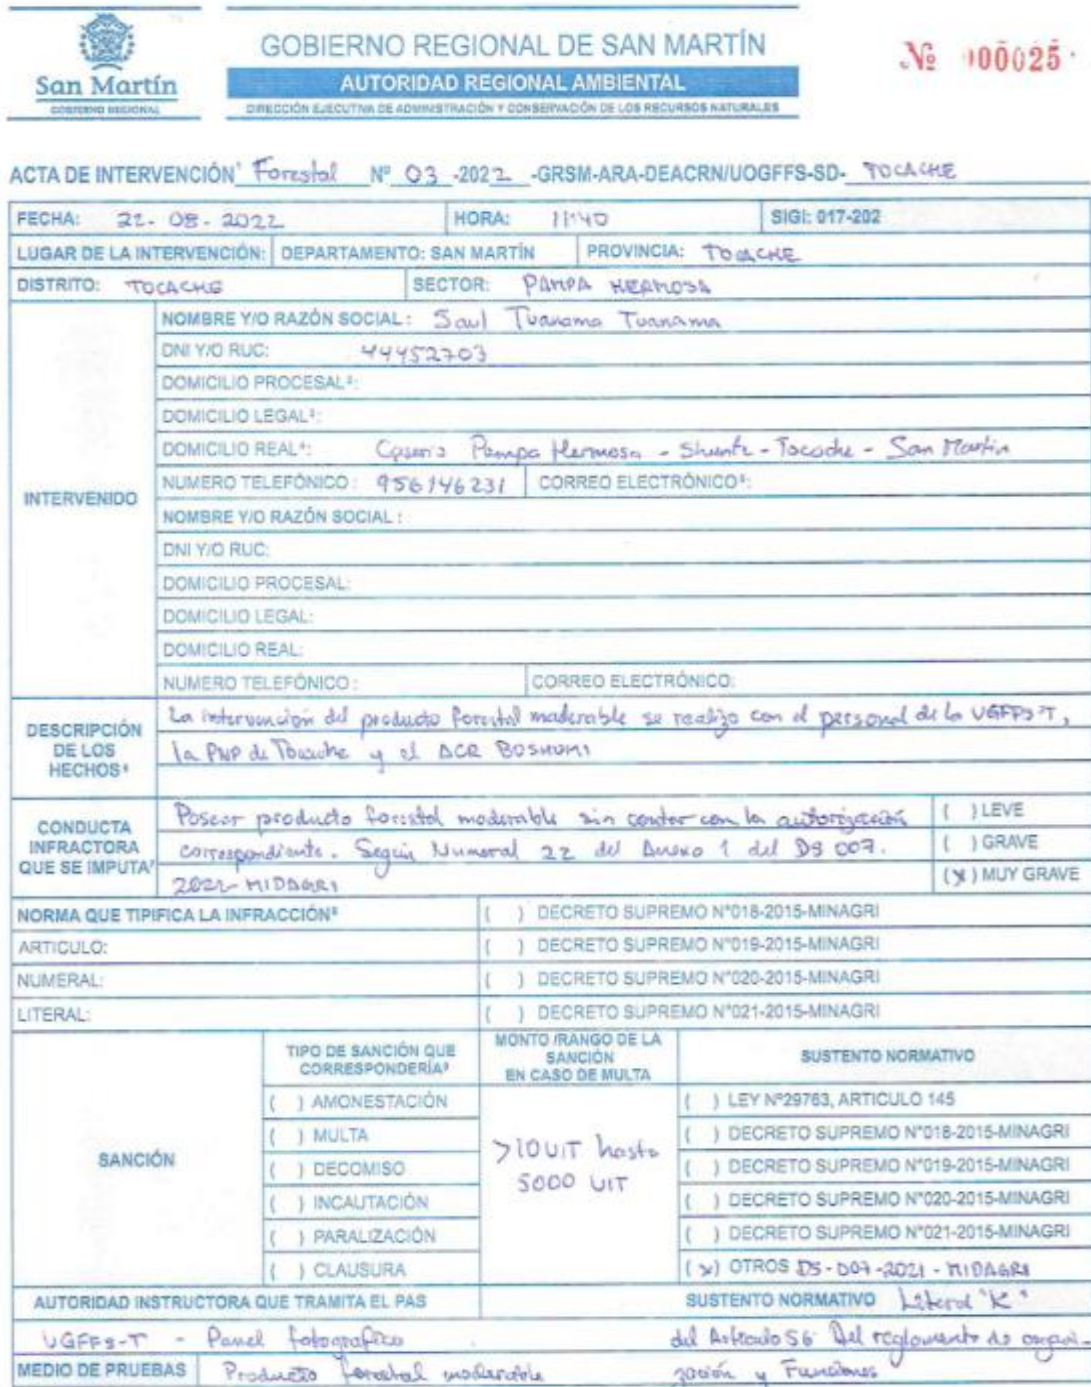 San Martín
GOBIERNO REGIONAL
GOBIERNO REGIONAL DE SAN MARTÍN
AUTORIDAD REGIONAL AMBIENTAL
DIRECCIÓN EJECUTIVA DE ADMINISTRACIÓN Y CONSERVACIÓN DE LOS RECURSOS NATURALES
№ 000025
ACTA DE INTERVENCIÓN¹ Forestal Nº 03 -2022 -GRSM-ARA-DEACRN/UOGFFS-SD- TOCACHE
FECHA: 22-08-2022 HORA: 11:40 SIGI: 017-202
LUGAR DE LA INTERVENCIÓN: DEPARTAMENTO: SAN MARTÍN PROVINCIA: TOCACHE
DISTRITO: TOCACHE SECTOR: PAMPA HERMOSA
INTERVENIDO
NOMBRE Y/O RAZÓN SOCIAL: Saul Tuanama Tuanama
DNI Y/O RUC: 44452703
DOMICILIO PROCESAL²:
DOMICILIO LEGAL³:
DOMICILIO REAL⁴: Caserio Pampa Hermosa - Shunte - Tocache - San Martin
NUMERO TELEFÓNICO: 956146231 CORREO ELECTRÓNICO⁵:
NOMBRE Y/O RAZÓN SOCIAL:
DNI Y/O RUC:
DOMICILIO PROCESAL:
DOMICILIO LEGAL:
DOMICILIO REAL:
NUMERO TELEFÓNICO: CORREO ELECTRÓNICO:
DESCRIPCIÓN DE LOS HECHOS⁶
La intervención del producto forestal maderable se realizo con el personal de la UGFFS-T,
la PNP de Tocache y el ACR BOSHUMI
CONDUCTA INFRACTORA QUE SE IMPUTA⁷
Poseer producto forestal maderable sin contar con la autorización
correspondiente. Según Numeral 22 del Anexo 1 del DS 007.
2021-MIDAGRI
( ) LEVE
( ) GRAVE
(X) MUY GRAVE
NORMA QUE TIPIFICA LA INFRACCIÓN⁸ ( ) DECRETO SUPREMO N°018-2015-MINAGRI
ARTICULO: ( ) DECRETO SUPREMO N°019-2015-MINAGRI
NUMERAL: ( ) DECRETO SUPREMO N°020-2015-MINAGRI
LITERAL: ( ) DECRETO SUPREMO N°021-2015-MINAGRI
SANCIÓN
TIPO DE SANCIÓN QUE CORRESPONDERÍA⁹
( ) AMONESTACIÓN
( ) MULTA
( ) DECOMISO
( ) INCAUTACIÓN
( ) PARALIZACIÓN
( ) CLAUSURA
MONTO /RANGO DE LA SANCIÓN EN CASO DE MULTA
>10UIT hasta
5000 UIT
SUSTENTO NORMATIVO
( ) LEY Nº29763, ARTICULO 145
( ) DECRETO SUPREMO N°018-2015-MINAGRI
( ) DECRETO SUPREMO N°019-2015-MINAGRI
( ) DECRETO SUPREMO N°020-2015-MINAGRI
( ) DECRETO SUPREMO N°021-2015-MINAGRI
(X) OTROS DS-007-2021-MIDAGRI
AUTORIDAD INSTRUCTORA QUE TRAMITA EL PAS SUSTENTO NORMATIVO Literal "K"
UGFFS-T - Panel fotografico del Articulo 56 Del reglamento de organi-
MEDIO DE PRUEBAS Producto forestal maderable zación y Funciones